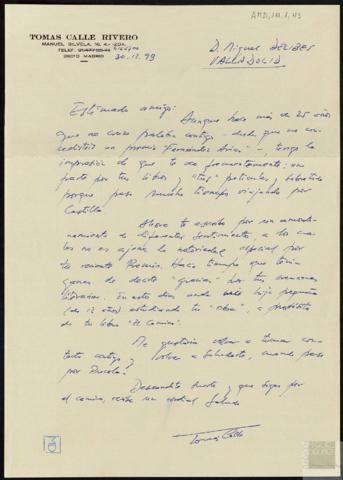 AMD, 111, 1, 43
TOMAS CALLE RIVERO
MANUEL SILVELA, 16, 4.º IZDA.
TELEF.
28010 MADRID
30.12.93
D. Miguel DELIBES
VALLADOLID
Estimado amigo:
Aunque hace más de 25 años
que no cruzo palabra contigo - desde que
un premio "Fernández - tengo la
impresión de que te frecuentemente; en
parte por tus libros y "tus" películas y
porque paso mucho tiempo viajando por
Castilla.
Ahora te escribo por un
de diferentes sentimientos, a los
no es ajena la notoriedad especial por
tu reciente Premio. Hacía tiempo que tenía
ganas de decirte "gracias" por tus
literarias. En estos días anda mi hija pequeña
(de 12 años) estudiando tu "obra", a propósito
de tu libro "El Camino".
Me gustaría volver a tomar con-
tacto contigo y a saludarte, cuando pase
por
Deseándote suerte y que sigas por
el camino, recibe un cordial saludo
Tomás Calle